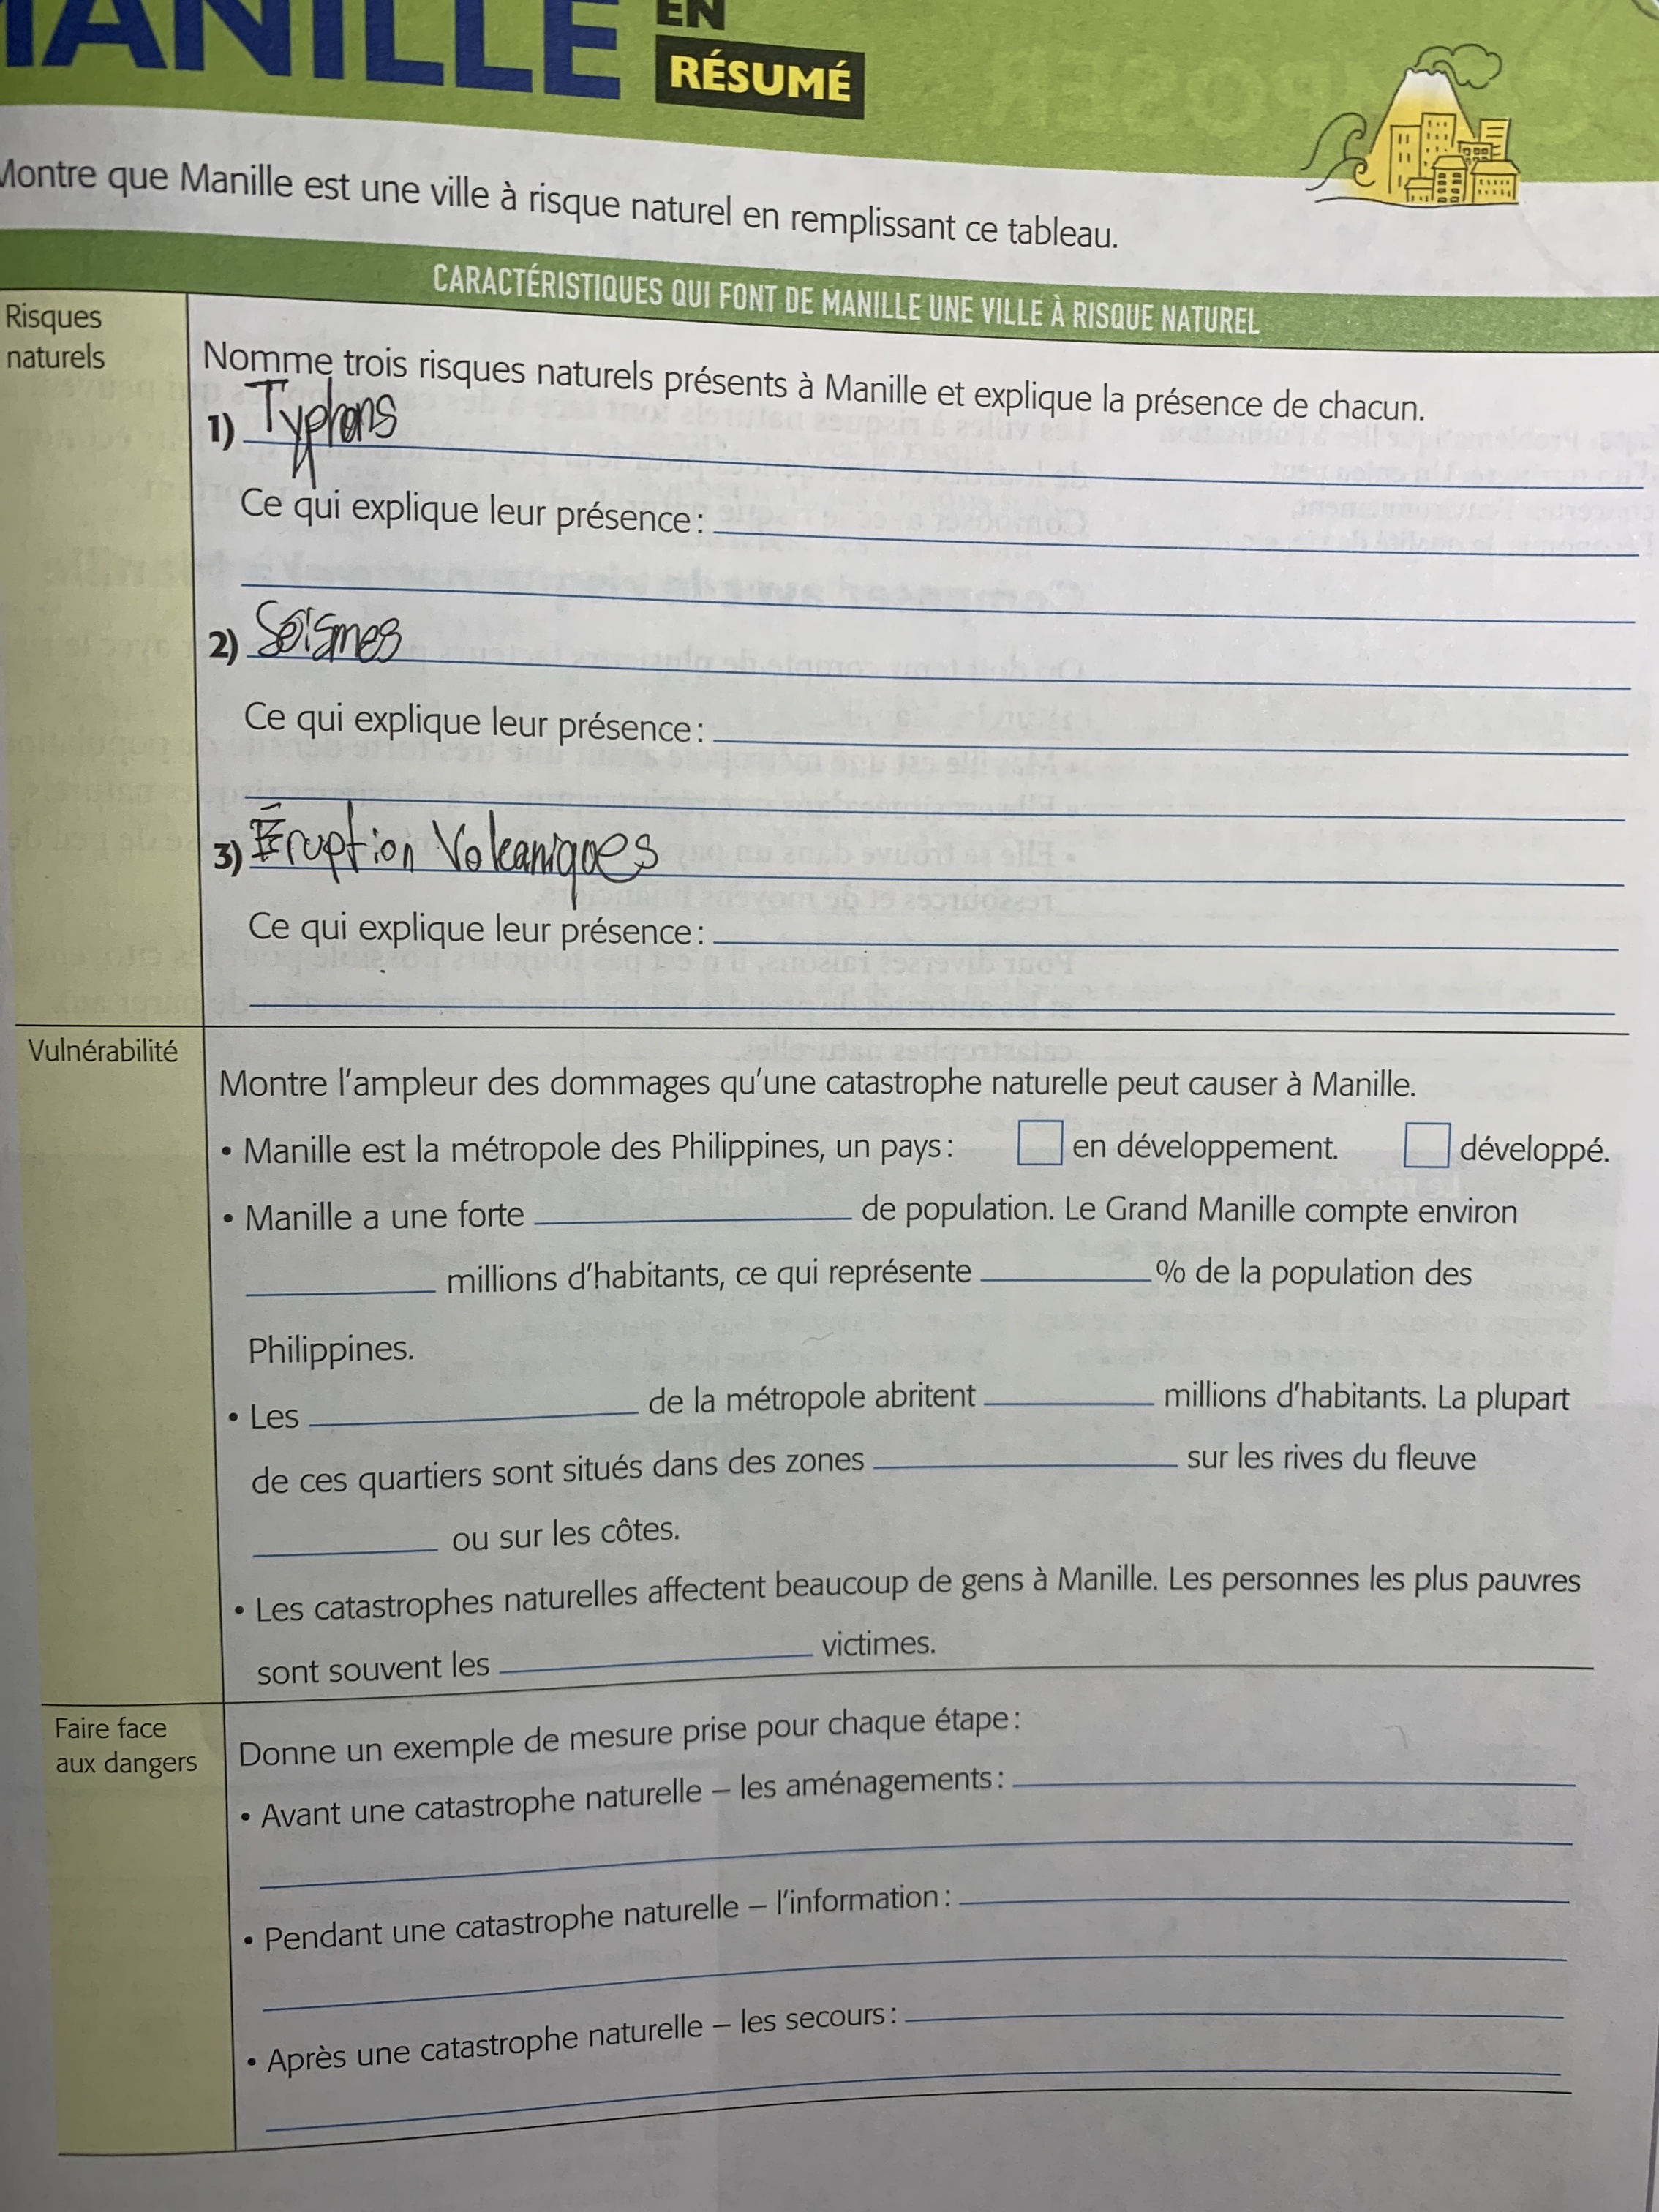 MANILLE EN
RÉSUMÉ
Montre que Manille est une ville à risque naturel en remplissant ce tableau.
CARACTÉRISTIQUES QUI FONT DE MANILLE UNE VILLE À RISQUE NATUREL
Risques
naturels
Nomme trois risques naturels présents à Manille et explique la présence de chacun.
1) Typhons
Ce qui explique leur présence :
2) Séismes
Ce qui explique leur présence :
3) Éruption Volcaniques
Ce qui explique leur présence :
Vulnérabilité
Montre l'ampleur des dommages qu'une catastrophe naturelle peut causer à Manille.
• Manille est la métropole des Philippines, un pays : en développement. développé.
• Manille a une forte de population. Le Grand Manille compte environ
millions d'habitants, ce qui représente % de la population des
Philippines.
• Les de la métropole abritent millions d'habitants. La plupart
de ces quartiers sont situés dans des zones sur les rives du fleuve
ou sur les côtes.
• Les catastrophes naturelles affectent beaucoup de gens à Manille. Les personnes les plus pauvres
sont souvent les victimes.
Faire face
aux dangers
Donne un exemple de mesure prise pour chaque étape :
• Avant une catastrophe naturelle – les aménagements :
• Pendant une catastrophe naturelle – l'information :
• Après une catastrophe naturelle – les secours :